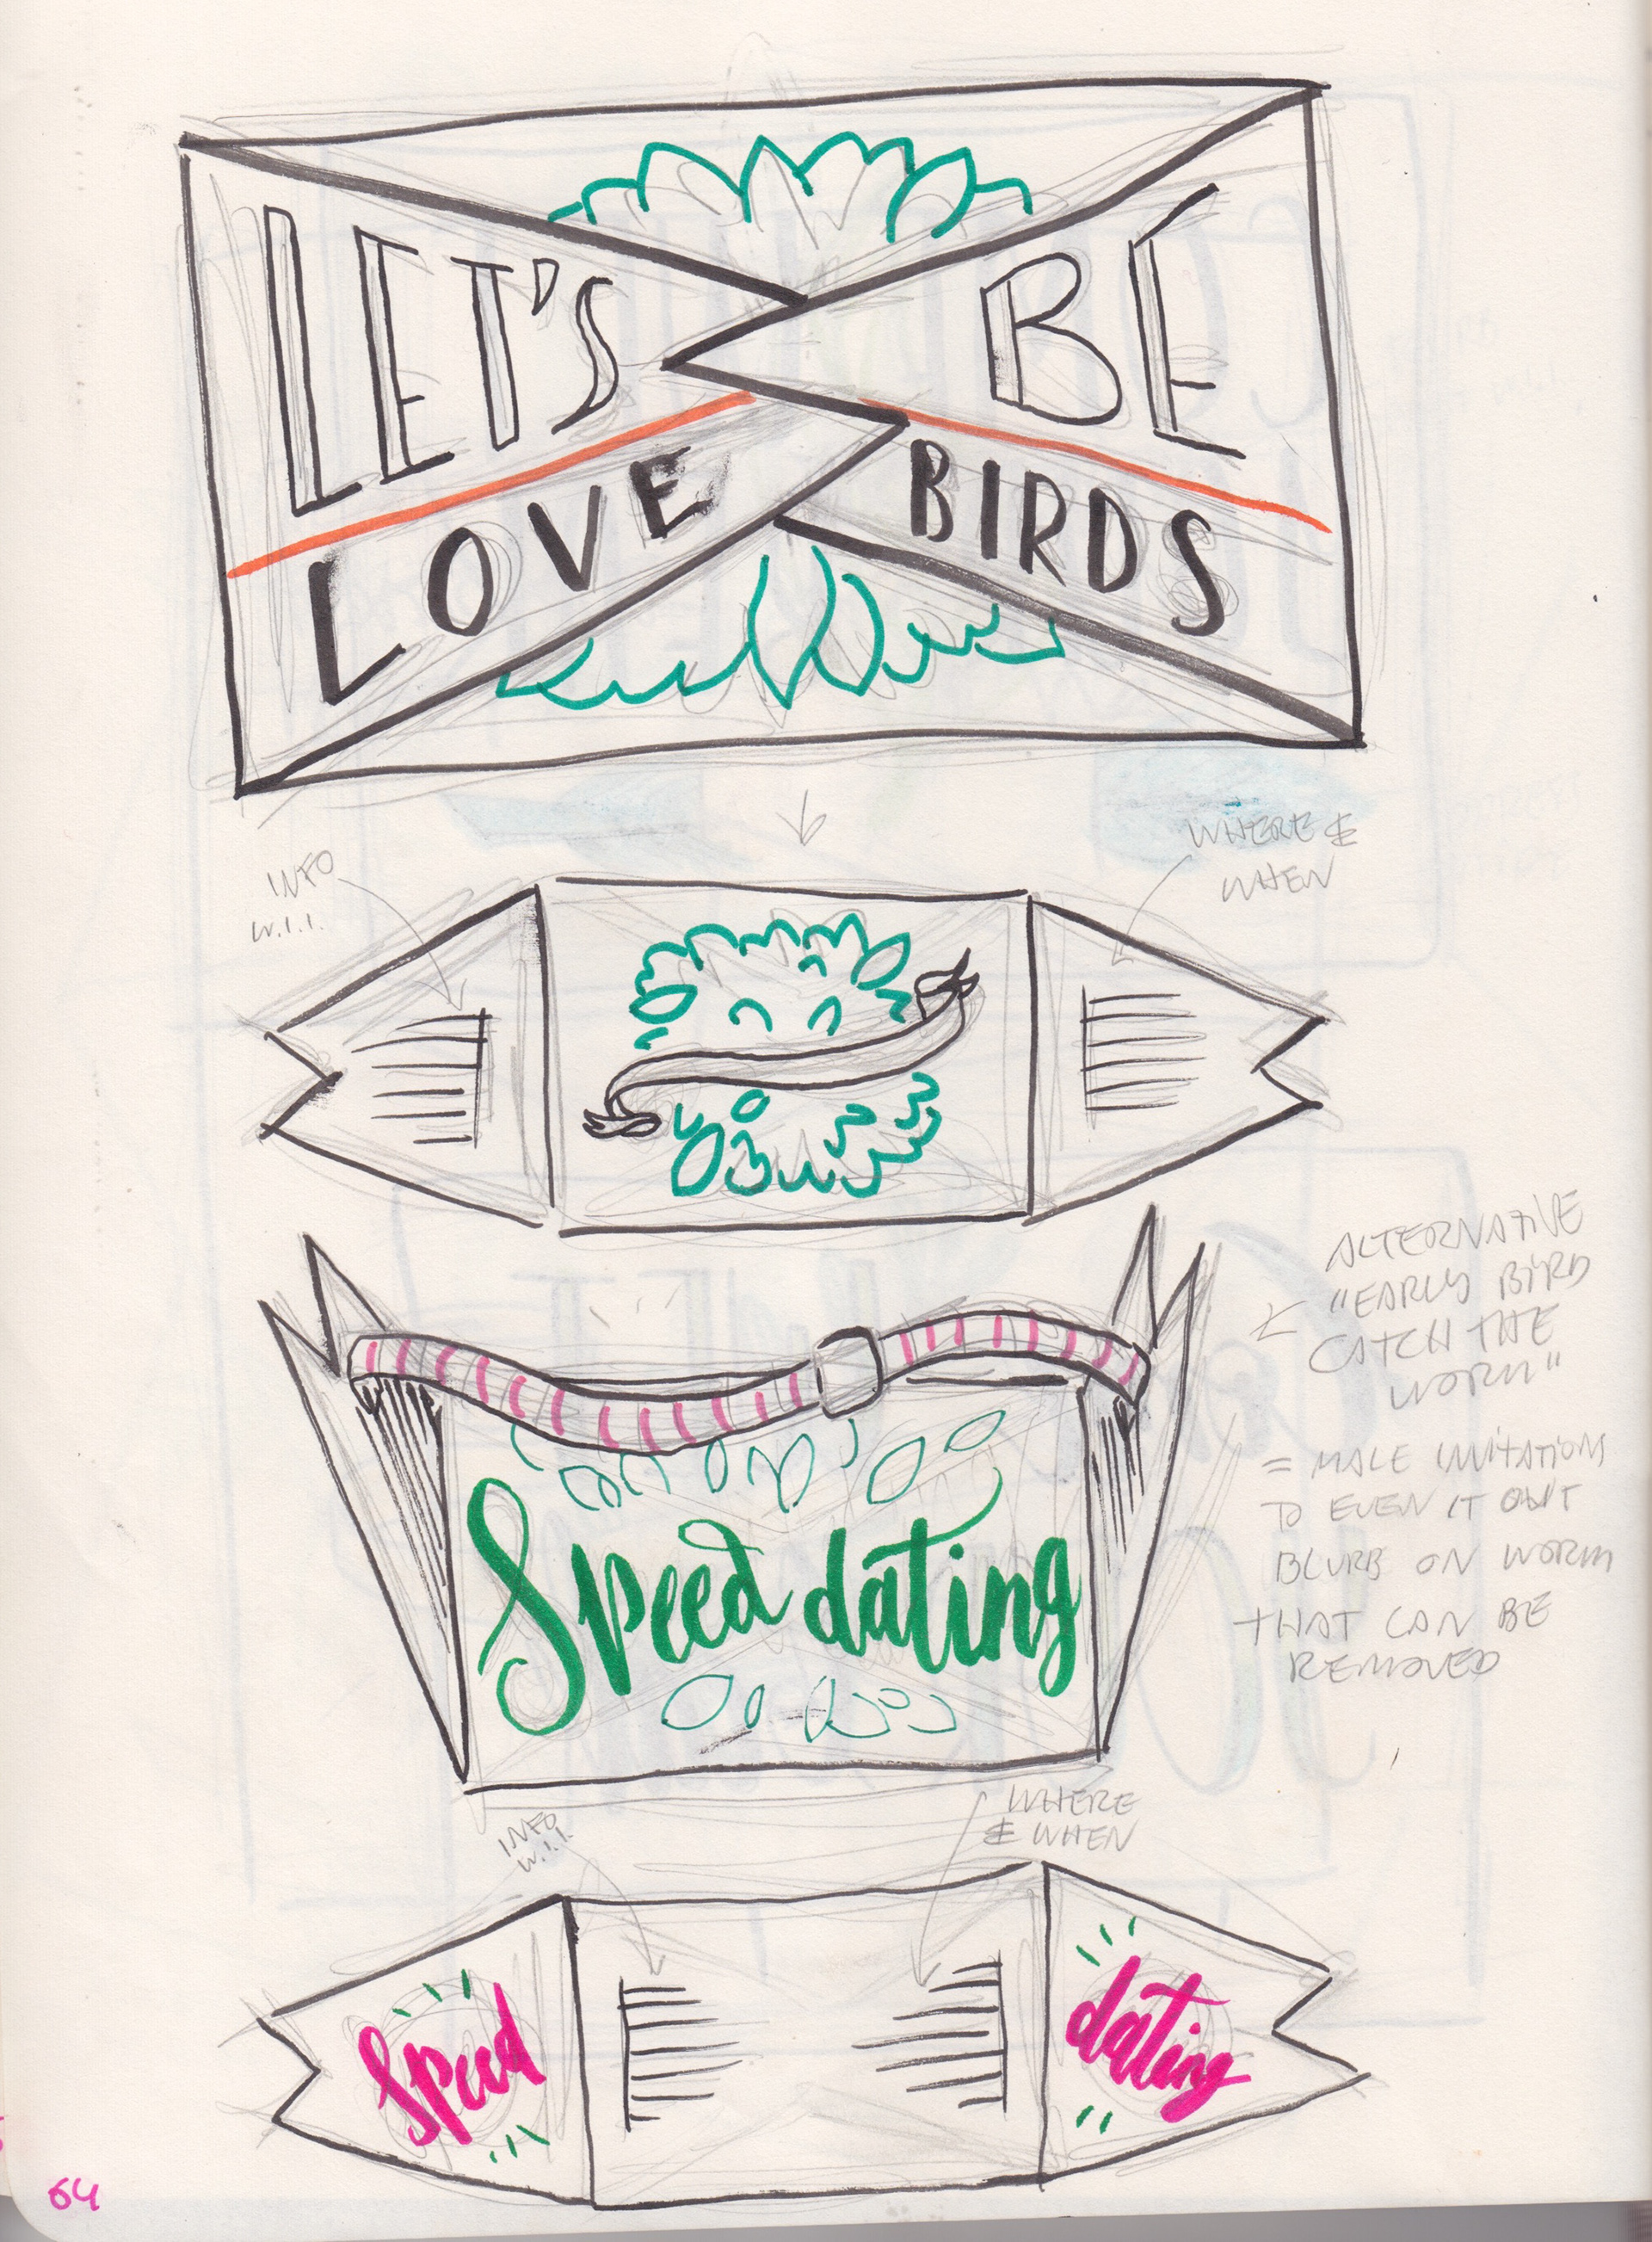 LET'S BE
LOVE BIRDS
INFO
W.I.I.
WHERE &
WHEN
ALTERNATIVE
"EARLY BIRD
CATCH THE
WORM"
= MALE INVITATIONS
TO EVEN IT OUT
BLURB ON WORM
THAT CAN BE
REMOVED
Speed dating
INFO
W.I.I.
WHERE
& WHEN
Speed
dating
64